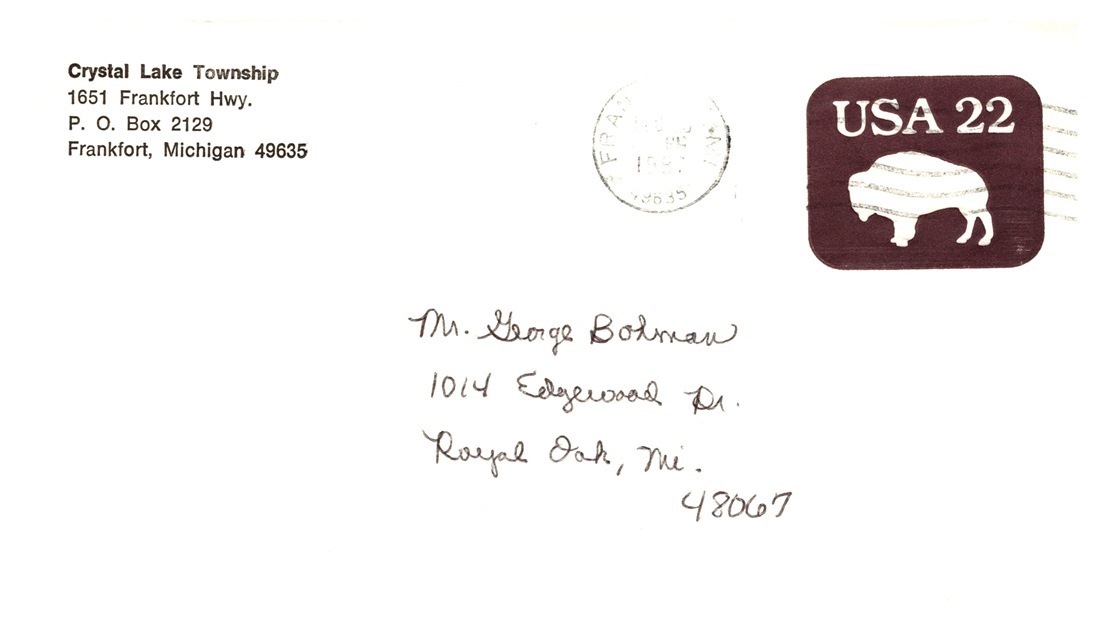 Crystal Lake Township
1651 Frankfort Hwy.
P. O. Box 2129
Frankfort, Michigan 49635
USA 22
49635
Mr. George Bohman
1014 Edgewood Dr.
Royal Oak, Mi.
48067